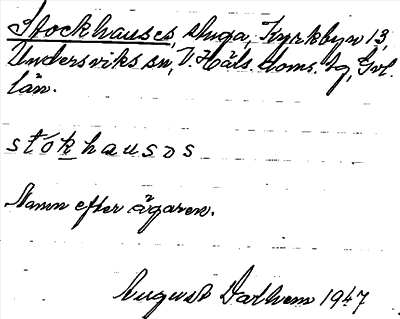 Stockhauses, stuga, Kyrkbyn 13,
Undersviks sn, V. Häls. doms. tg, Gvl.
län.
stókhausos
Namn efter ägaren.
August Dalhem 1947